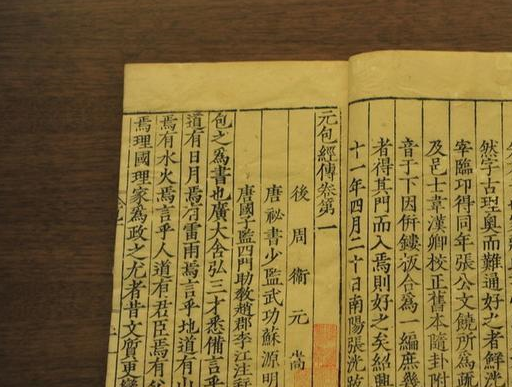 然字古理奧而難通好之者鮮洸
宰臨卭得同年張公文饒所為疏
及邑士韋漢卿校正舊本隨卦附
音于下因併鏤板合為一編庶幾
者得其門而入焉則好之矣紹興
十一年四月二十日南陽張洸
元包經傳卷第一
後周衞元嵩
唐秘書少監武功蘇源明
唐國子監四門助教趙郡李江注
包之為書也廣大含弘三才悉備言乎
道有日月焉有雷雨焉言乎地道有山
焉有水火焉言乎人道有君臣焉有父
焉理國理家為政之尤者昔文質更變